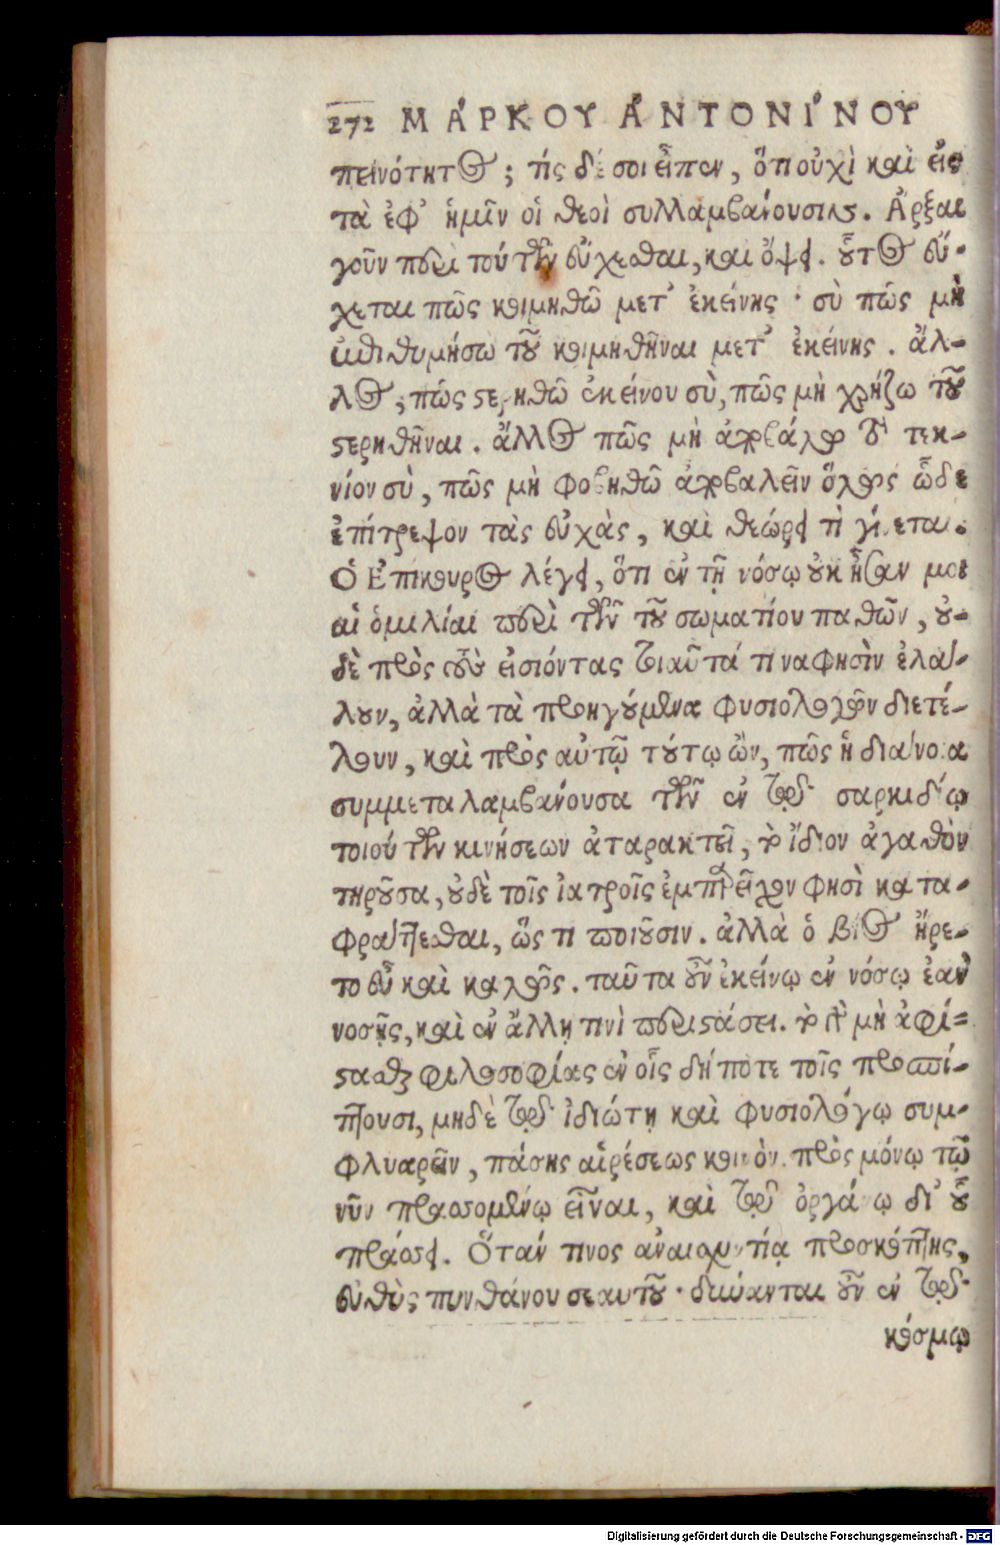 272 ΜΑ΄ΡΚΟΥ Α᾿ΝΤΟΝΙ΄ΝΟΥ
πεινότητος; τίς δέ σοι εἶπεν, ὅτι οὐχὶ καὶ εἰς
τὰ ἐφ’ ἡμῖν οἱ θεοὶ συλλαμβάνουσιν. Ἄρξαι
γοῦν περὶ τούτων εὔχεσθαι, και ὄψει. οὗτος εὔ-
χεται πῶς κοιμηθῶ μετ’ ἐκείνης · σὺ πῶς μὴ
ἐπιθυμήσω τοῦ κοιμηθῆναι μετ’ ἐκείνης. ἄλ-
λος, πῶς στερηθῶ ἐκείνου σὺ, πῶς μὴ χρήζω τοῦ
στερηθῆναι. ἄλλος πῶς μὴ ἀποβάλω τὸ τεκ-
νίον σὺ, πῶς μὴ φοβηθῶ ἀποβαλεῖν ὅλως ὧδε
ἐπίτρεψον τὰς εὐχὰς, καὶ θεώρει τὶ γίνεται.
Ὁ Ἐπίκουρος λέγει, ὅτι ἐν τῇ νόσῳ οὐκ ἦσαν μοι
αἱ ὁμιλίαι περὶ τῶν τοῦ σωματίου παθῶν, οὐ-
δὲ πρὸς τοὺς εἰσιόντας τοιαῦτά τινα φησὶν ἐλά-
λουν, ἀλλὰ τὰ προηγούμενα φυσιολογῶν διετέ-
λουν, καὶ πρὸς αὐτῷ τούτῳ ὢν, πῶς ἡ διάνοια
συμμεταλαμβάνουσα τῶν ἐν τῷ σαρκιδίῳ
τοιούτων κινήσεων ἀταρακτεῖ, τὸ ἴδιον ἀγαθὸν
τηροῦσα, οὐδὲ τοῖς ἰατροῖς ἐμπαρεῖχον φησὶ κατα-
φράττεσθαι, ὥς τι ποιοῦσιν. ἀλλὰ ὁ βίος ἤρε-
το εὖ καὶ καλῶς. ταῦτα οὖν ἐκείνῳ ἐν νόσῳ ἐὰν
νοσῇς, καὶ ἐν ἄλλῃ τινὶ περιστάσει. τὸ γὰρ μὴ ἀφί-
στασθαι φιλοσοφίας ἐν οἷς δήποτε τοῖς προσπί-
πτουσι, μηδὲ τῷ ἰδιώτῃ καὶ φυσιολόγῳ συμ-
φλυαρεῖν, πάσης αἱρέσεως κοινὸν. πρὸς μόνῳ τῷ
νῦν πρασσομένῳ εἶναι, καὶ τῷ ὀργάνῳ δι’ οὗ
πράσσει. Ὅταν τινος ἀναισχυντίᾳ προσκόπτῃς,
εὐθὺς πυνθάνου σεαυτοῦ · δύνανται οὖν ἐν τῷ
κόσμῳ
Digitalisierung gefördert durch die Deutsche Forschungsgemeinschaft - DFG